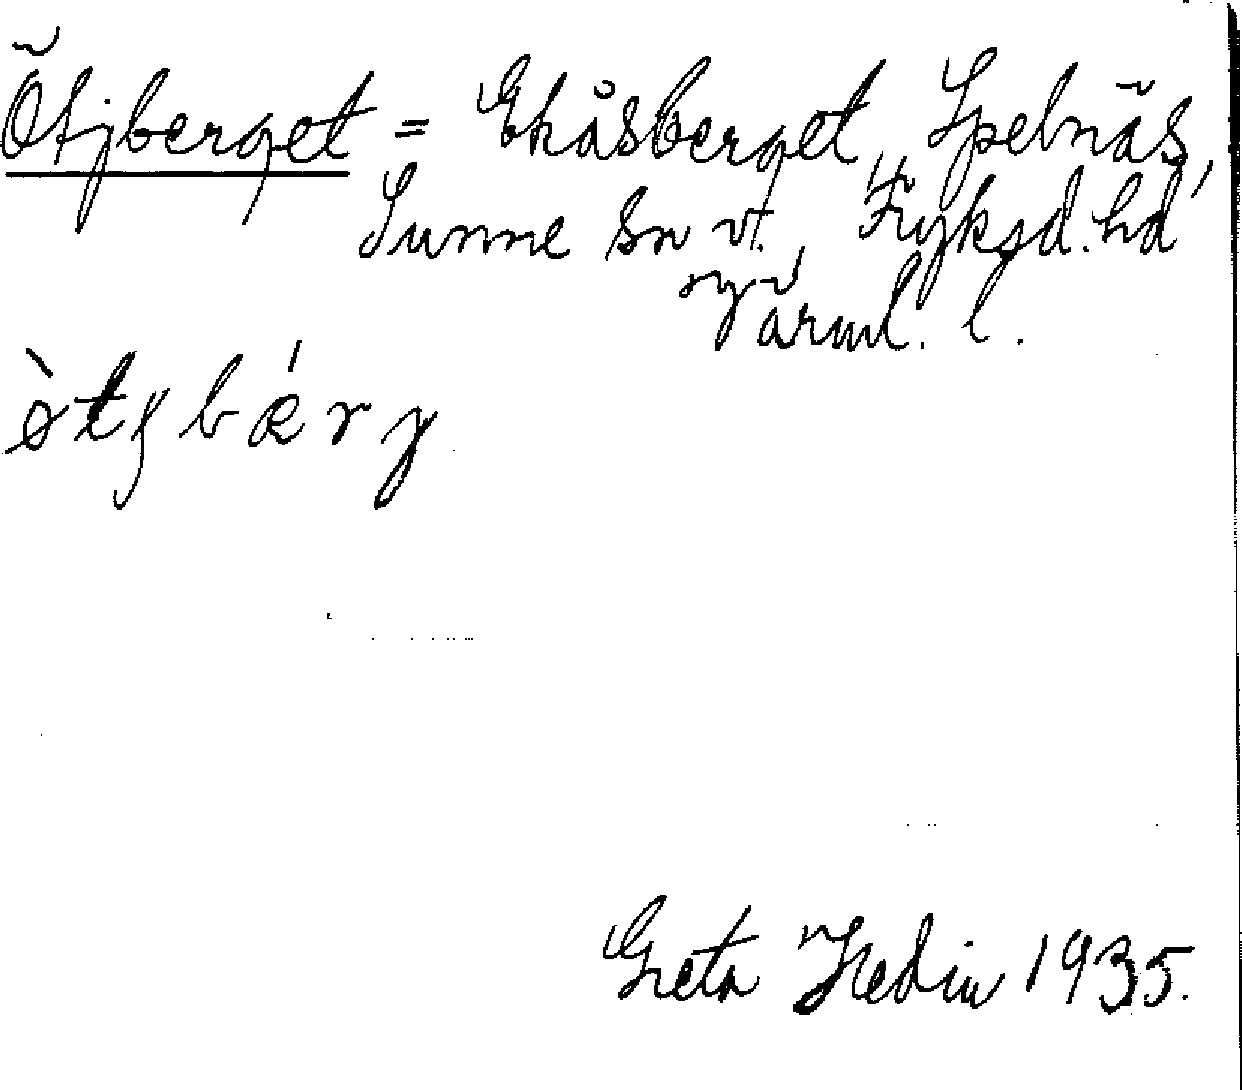 Ötjberget = Ekåsberget, Spelnäs,
Sunne sn v., Fryksd. hd
Värml. l.
Greta Hedin 1935.